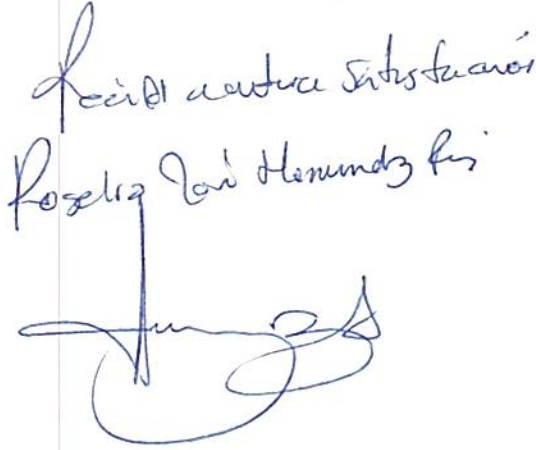 Recibí a entera satisfacción
Rogelio José Hernández